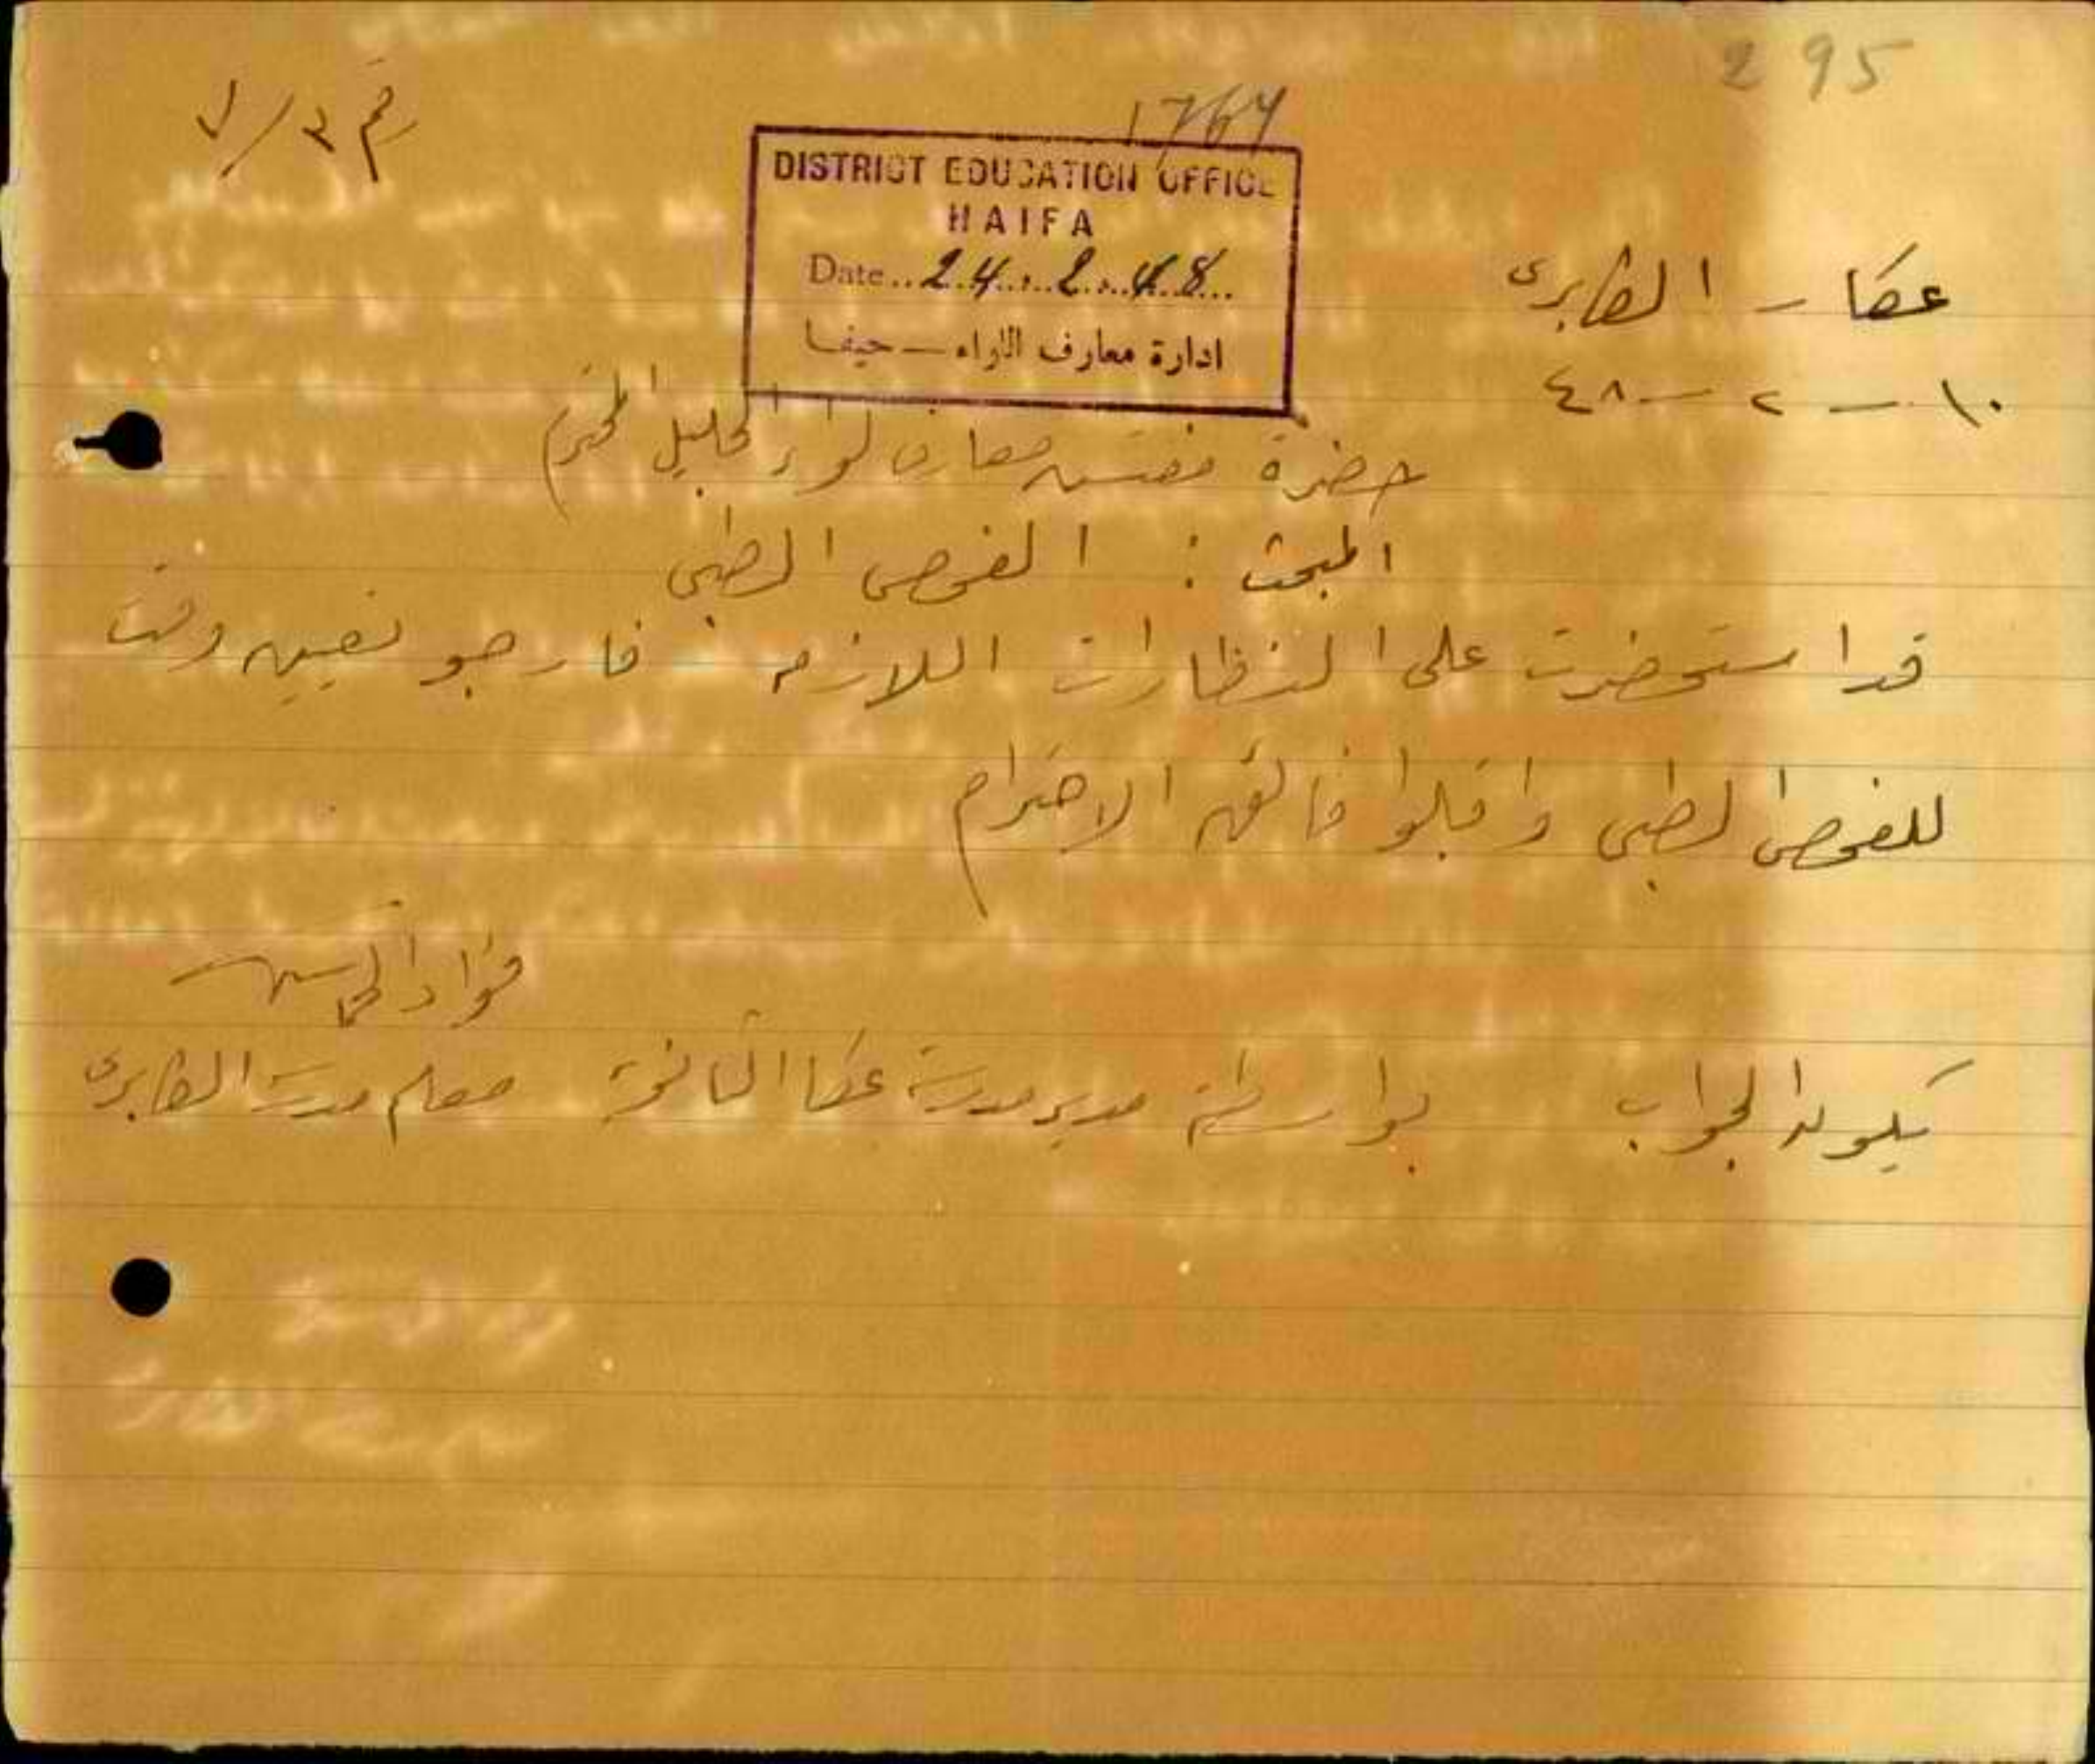 295
1764
رقم ٣/٧
DISTRICT EDUCATION OFFICE
HAIFA
Date..24..2..48...
ادارة معارف اللواء — حيفا
عكا – الكابري
١٠ – ٢ – ٤٨
حضرة مفتش معارف لواء الجليل المحترم
المبحث : الفحص الطبي
قد استحضرت على النظارات اللازمة . فارجو تعيين وقت
للفحص الطبي واقبلوا فائق الاحترام
فؤاد
يكون الجواب بواسطة مدير مدرسة عكا الثانوية معلم مدرسة الكابري